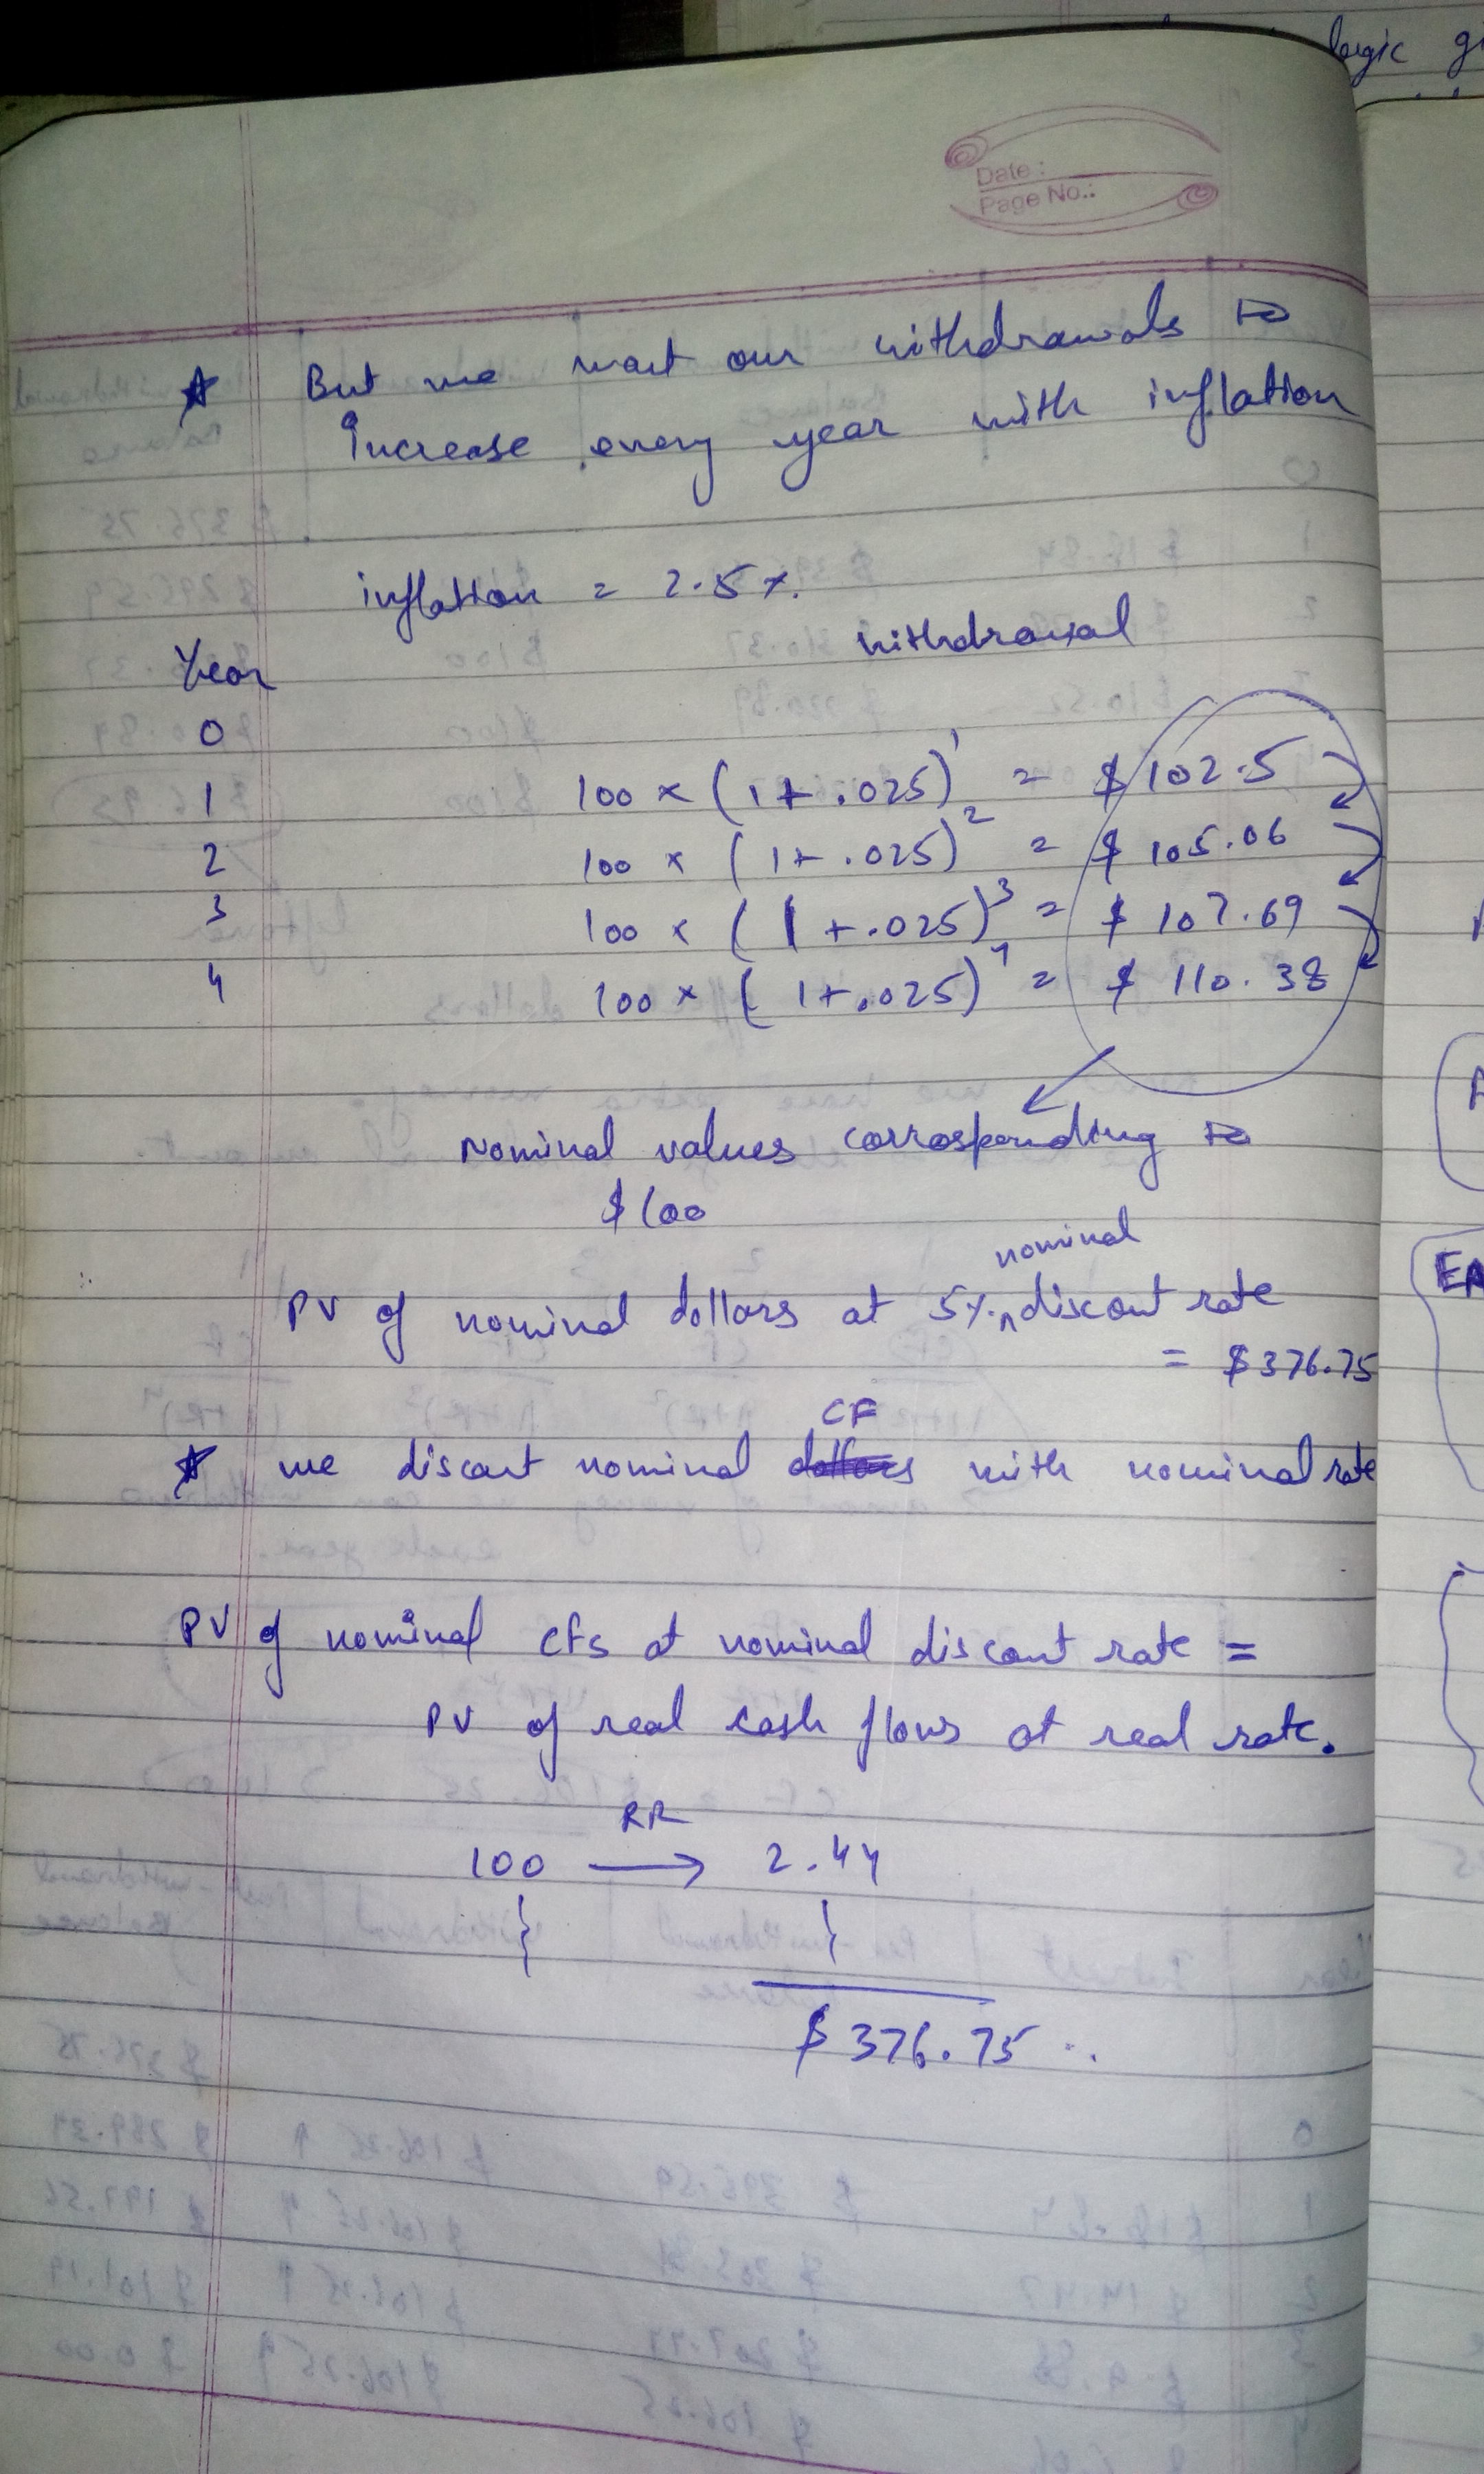 logic
Date :
Page No.:
But we want our withdrawals to
Increase every year with inflation
inflation = 2.5 %.
Year withdrawal
0
1 100 × (1 + .025)^1 = $ 102.5
2 100 × (1 + .025)^2 = $ 105.06
3 100 × (1 + .025)^3 = $ 107.69
4 100 × (1 + .025)^4 = $ 110.38
Nominal values corrosponding to
$100
nominal
PV of nominal dollars at 5% discout rate
= $376.75
CF
we discout nominal dollars with nominal rate
PV of nominal CFs at nominal discout rate =
PV of real cash flows at real rate.
RR
100 → 2.44
$ 376.75